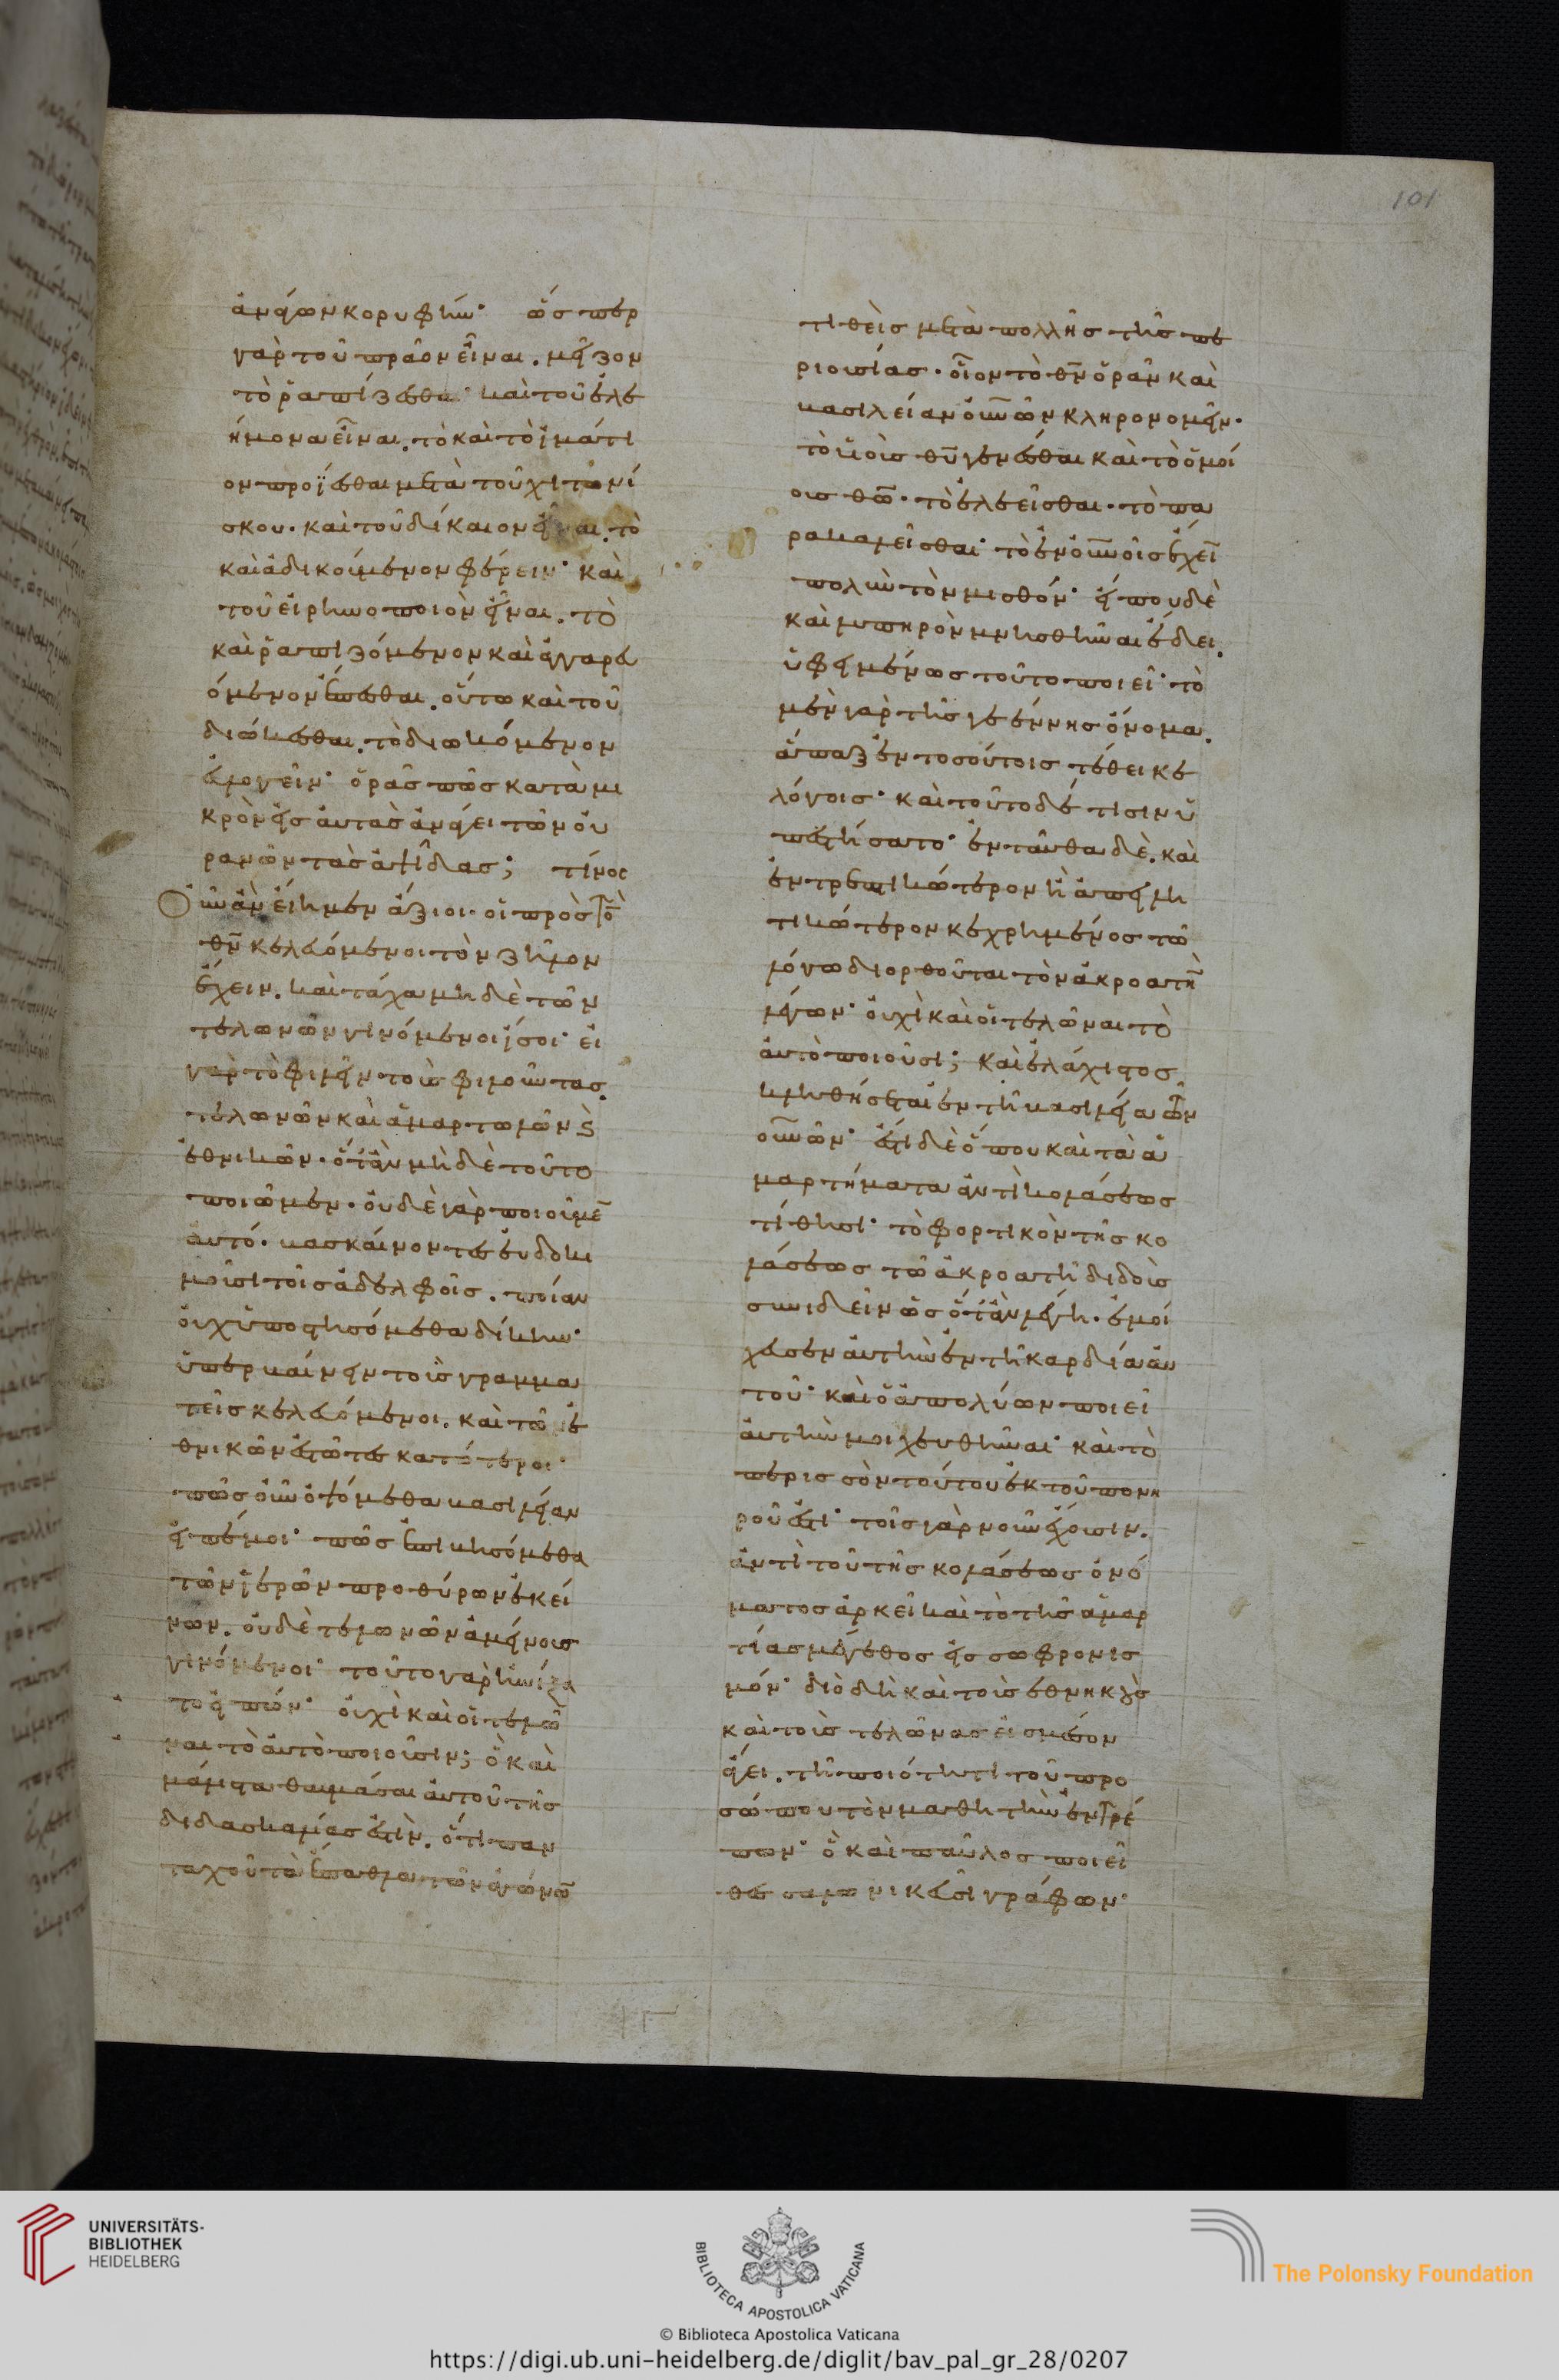 101
ἀνάγων κορυφήν· ὥσπερ
γὰρ τοῦ πρᾶον εἶναι. μεῖζον
τὸ ῥαπίζεσθαι καὶ τοῦ ἐλε
ήμονα εἶναι. τὸ καὶ τὸ ἱμάτι
ον προΐεσθαι μετὰ τοῦ χιτωνί
σκου. καὶ τοῦ δίκαιον εἶναι. τὸ
καὶ ἀδικούμενον φέρειν· καὶ
τοῦ εἰρηνοποιὸν εἶναι. τὸ
καὶ ῥαπιζόμενον καὶ ἀγγαρευ
όμενον ἕπεσθαι. οὕτω καὶ τοῦ
διώκεσθαι. τὸ διωκόμενον
εὐλογεῖν· ὁρᾷς πῶς κατὰ μι
κρὸν εἰς αὐτὰς ἀνάγει τῶν οὐ
ρανῶν τὰς ἁψῖδας; τίνος
οὖν ἂν εἴημεν ἄξιοι· οἱ πρὸς τὸν
θν κελευόμενοι τὸν ζῆλον
ἔχειν. καὶ τάχα μηδὲ τῶν
τελωνῶν γινόμενοι ἴσοι· εἰ
γὰρ τὸ φιλεῖν τοὺς φιλοῦντας.
τελωνῶν καὶ ἁμαρτωλῶν κ
ἐθνικῶν. ὅταν μὴ δὲ τοῦτο
ποιῶμεν. οὐδὲ γὰρ ποιοῦμε
αὐτό. βασκαίνοντες εὐδοκι
μοῦσι τοῖς ἀδελφοῖς. ποίαν
οὐχ ὑποστησόμεθα δίκην·
ὑπερβαίνειν τοὺς γραμμα
τεῖς κελευόμενοι. καὶ τῶ ἐ
θνικῶν ἑστῶτες κατώτεροι·
πῶς οὖν ὀψόμεθα βασιλείαν
εἰπέ μοι· πῶς ἐπιβησόμεθα
τῶν ἱερῶν προθύρων ἐκεί
νων. οὐδὲ τελωνῶν ἀμείνους
γινόμενοι· τοῦτο γὰρ ἠνίξα
το εἰπών· οὐχὶ καὶ οἱ τελῶ
ναι τὸ αὐτὸ ποιοῦσιν; ὃ καὶ
μάλιστα θαυμάσαι αὐτοῦ τῆς
διδασκαλίας ἐστίν. ὅτι παν
ταχοῦ τὰ ἔπαθλα τῶν ἀγώνω
τιθεὶς μετὰ πολλῆς τῆς πε
ριουσίας· οἷον τὸ θν ὁρᾶν καὶ
βασιλείαν οὐνῶν κληρονομεῖν.
τὸ υἱοὺς θυ γενέσθαι καὶ τὸ ὁμοί
ους θω· τὸ ἐλεεῖσθαι· τὸ πα
ρακαλεῖσθαι· τὸ ἐν οὐνοῖς ἔχει
πολὺν τὸν μισθόν· εἴ που δὲ
καὶ λυπηρὸν μνησθῆναι ἔδει.
ὑφειμένως τοῦτο ποιεῖ· τὸ
μὲν γὰρ τῆς γεέννης ὄνομα.
ἅπαξ ἐν τοσούτοις τέθεικε
λόγοις· καὶ τοῦτο δέ τισιν ὑ
πεστήσατο· ἐνταῦθα δὲ. καὶ
ἐντρεπτικώτερον ἢ ἀπειλη
τικώτερον κεχρημένος τῶ
λόγω διορθοῦται τὸν ἀκροατὴ
λέγων· οὐχὶ καὶ οἱ τελῶναι τὸ
αὐτὸ ποιοῦσι; καὶ ἐλάχιστος
κληθήσεται ἐν τῆ βασιλεία τῶν
οὐνῶν· ἔστι δὲ ὅπου καὶ τὰ ἁ
μαρτήματα ἀντὶ κολάσεως
τίθησι· τὸ φορτικὸν τῆς κο
λάσεως τῶ ἀκροατῆ διδοὺς
συνιδεῖν ὡς ὅταν λέγη. ἐμοί
χευσεν αὐτὴν ἐν τῆ καρδία αὐ
τοῦ· καὶ ὁ ἀπολύων ποιεῖ
αὐτὴν μοιχευθῆναι· καὶ τὸ
περισσὸν τούτου ἐκ τοῦ πονη
ροῦ ἐστι· τοῖς γὰρ νοῦν ἔχουσιν.
ἀντὶ τοῦ τῆς κολάσεως ὀνό
ματος ἀρκεῖ καὶ τὸ τῆς ἁμαρ
τίας μέγεθος εἰς σωφρονισ
μόν· διὸ δὴ καὶ τοὺς ἐθνηκοὺς
καὶ τοὺς τελώνας εἰς μέσον
ἄγει. τῆ ποιότητι τοῦ προ
σώπου τὸν μαθητὴν ἐντρέ
πων· ὃ καὶ παῦλος ποιεῖ
θεσσαλονικεῦσι γράφων·
UNIVERSITÄTS-
BIBLIOTHEK
HEIDELBERG
BIBLIOTECA APOSTOLICA VATICANA
The Polonsky Foundation
© Biblioteca Apostolica Vaticana
https://digi.ub.uni-heidelberg.de/diglit/bav_pal_gr_28/0207